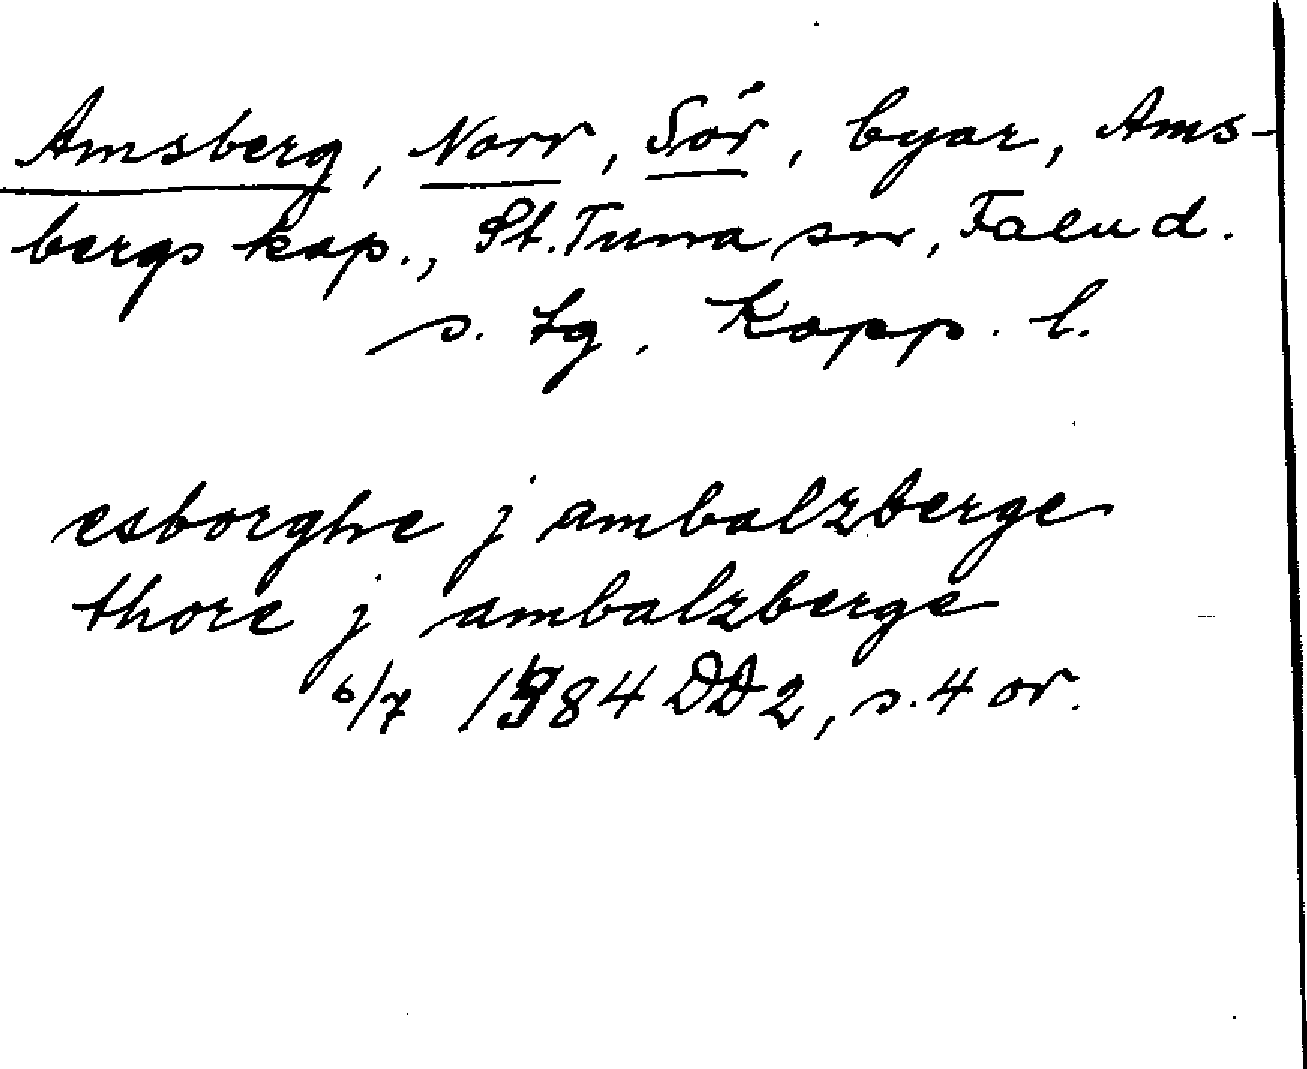 Amsberg, Norr, Sör, byar, Ams-
bergs kap., St. Tuna sn, Falu d.
s. tg. Kopp. l.
esborghe j ambalzberge
thore j ambalzberge
6/7 1384 DD 2, s. 4 or.